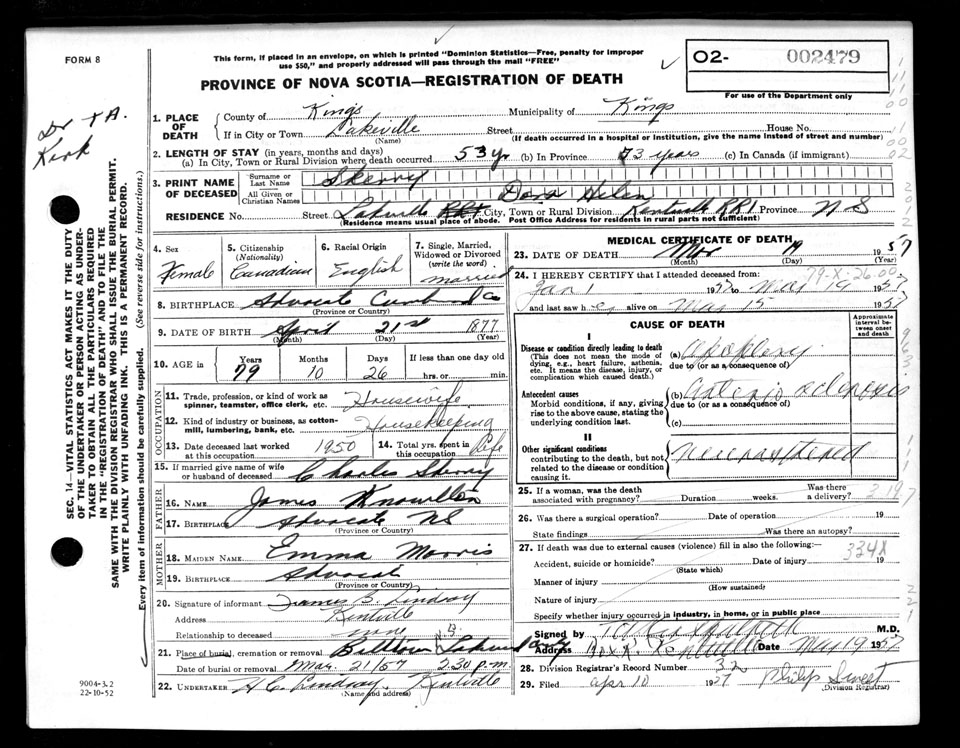 FORM 8
This form, if placed in an envelope, on which is printed "Dominion Statistics—Free, penalty for improper
use $50," and properly addressed will pass through the mail "FREE"
O2- 002479
For use of the Department only
PROVINCE OF NOVA SCOTIA—REGISTRATION OF DEATH
Dr TA.
Kirk
1. PLACE OF DEATH
County of Kings Municipality of Kings
If in City or Town Lakeville Street House No.
(Name) (If death occurred in a hospital or institution, give the name instead of street and number)
2. LENGTH OF STAY (in years, months and days)
(a) In City, Town or Rural Division where death occurred 53 yr (b) In Province 73 years (c) In Canada (if immigrant)
3. PRINT NAME OF DECEASED
Surname or Last Name Skerry
All Given or Christian Names Dora Helen
RESIDENCE No. Street Lakeville RR1 City, Town or Rural Division Kentville RR1 Province N S
(Residence means usual place of abode. Post Office Address for residents in rural parts not sufficient)
4. Sex Female
5. Citizenship (Nationality) Canadian
6. Racial Origin English
7. Single, Married, Widowed or Divorced (write the word) married
8. BIRTHPLACE Advocate Cumberland Co
(Province or Country)
9. DATE OF BIRTH April 21st 1877
(Month) (Day) (Year)
10. AGE in Years Months Days If less than one day old
79 10 26 hrs. or min.
OCCUPATION
11. Trade, profession, or kind of work as spinner, teamster, office clerk, etc. Housewife
12. Kind of industry or business, as cotton-mill, lumbering, bank, etc. Housekeeping
13. Date deceased last worked at this occupation 1950
14. Total yrs. spent in this occupation Life
15. If married give name of wife or husband of deceased Charles Skerry
FATHER
16. NAME James Knowlton
17. BIRTHPLACE Advocate NS
(Province or Country)
MOTHER
18. MAIDEN NAME Emma Morris
19. BIRTHPLACE Advocate
(Province or Country)
20. Signature of informant James B. Lindsay
Address Kentville
Relationship to deceased none
21. Place of burial, cremation or removal Billtown Lakeville
Date of burial or removal Mar. 21/57 2.30 p.m.
22. UNDERTAKER H C Lindsay, Kentville
(Name and address)
MEDICAL CERTIFICATE OF DEATH
23. DATE OF DEATH Mar 19 1957
(Month) (Day) (Year)
79-X-26.00
24. I HEREBY CERTIFY that I attended deceased from:
Jan 1 to Mar 19 1957
and last saw h er alive on Mar 15 1957
CAUSE OF DEATH
Approximate interval between onset and death
I
Disease or condition directly leading to death
(This does not mean the mode of dying, e.g., heart failure, asthenia, etc. It means the disease, injury, or complication which caused death.)
(a) apoplexy
due to (or as a consequence of)
Antecedent causes
Morbid conditions, if any, giving rise to the above cause, stating the underlying condition last.
(b)
due to (or as a consequence of)
(c)
II
Other significant conditions
contributing to the death, but not related to the disease or condition causing it.
25. If a woman, was the death associated with pregnancy? Duration weeks. Was there a delivery?
26. Was there a surgical operation? Date of operation 19
State findings Was there an autopsy?
27. If death was due to external causes (violence) fill in also the following:—
334X
Accident, suicide or homicide? Date of injury 19
(State which)
Manner of injury
(How sustained)
Nature of injury
Specify whether injury occurred in industry, in home, or in public place
Signed by M.D.
Address Kentville Date Mar 19 1957
28. Division Registrar's Record Number 32
29. Filed Apr 10 1957 Philip Sweet
(Division Registrar)
SEC. 14—VITAL STATISTICS ACT MAKES IT THE DUTY
OF THE UNDERTAKER OR PERSON ACTING AS UNDER-
TAKER TO OBTAIN ALL THE PARTICULARS REQUIRED
IN THE "REGISTRATION OF DEATH" AND TO FILE THE
SAME WITH THE DIVISION REGISTRAR WHO SHALL ISSUE THE BURIAL PERMIT.
WRITE PLAINLY WITH UNFADING INK. THIS IS A PERMANENT RECORD.
Every item of information should be carefully supplied. (See reverse side for instructions.)
9004-3.2
22-10-52